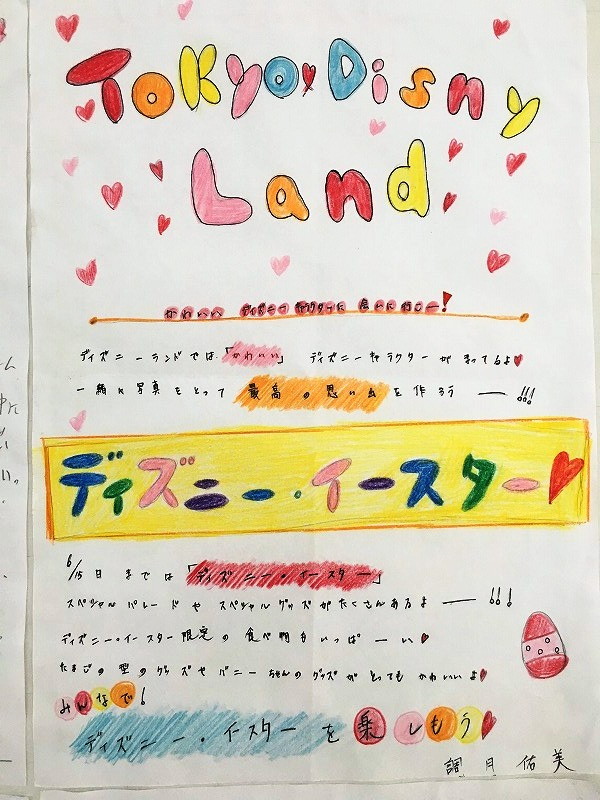 Tokyo Disny
Land
かわいい ディズニーキャラクターに 会いに行こー!
ディズニーランドでは「かわいい」 ディズニーキャラクターが まってるよ
一緒に写真をとって 最高の思い出を作ろうー!!!
ディズニー・イースター
6/15日までは「ディズニー・イースター」
スペシャルパレードや スペシャルグッズがたくさんあるよー!!!
ディズニー・イースター限定の食べ物もいっぱーい
たまごの型のグッズやバニーちゃんのグッズが とってもかわいいよ
みんなで!
ディズニー・イースターを楽しもう
調月佑美